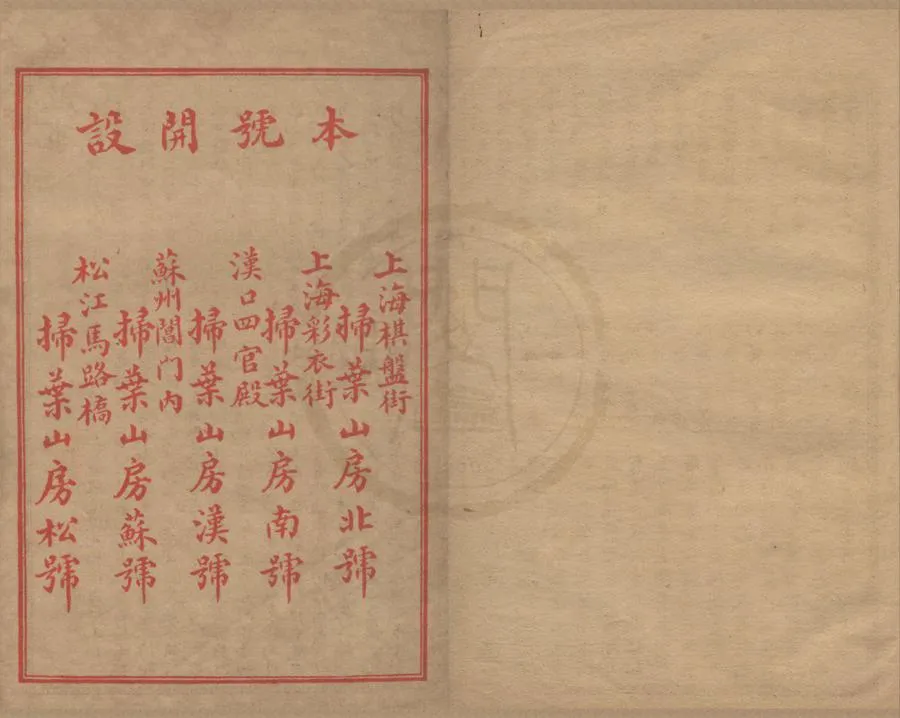 本號開設
上海棋盤街
掃葉山房北號
上海彩衣街
掃葉山房南號
漢口四官殿
掃葉山房漢號
蘇州閶門內
掃葉山房蘇號
松江馬路橋
掃葉山房松號